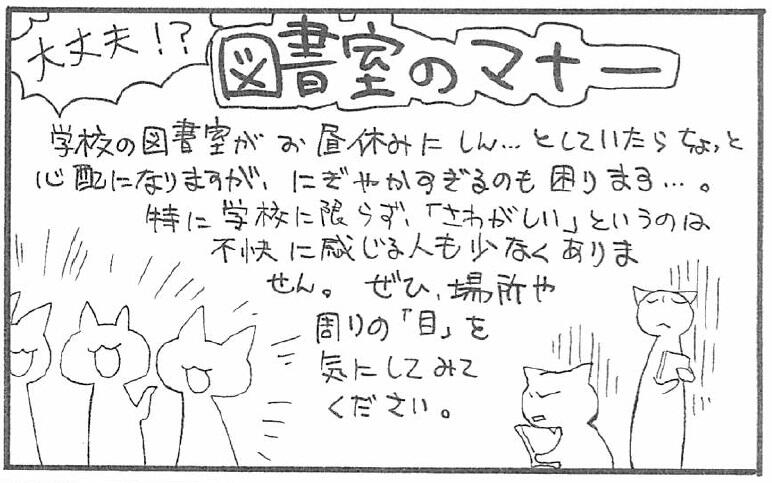 大丈夫!?
図書室のマナー
学校の図書室がお昼休みにしん…としていたらちょっと
心配になりますが、にぎやかすぎるのも困ります…。
特に学校に限らず、「さわがしい」というのは
不快に感じる人も少なくありま
せん。ぜひ、場所や
周りの「目」を
気にしてみて
ください。